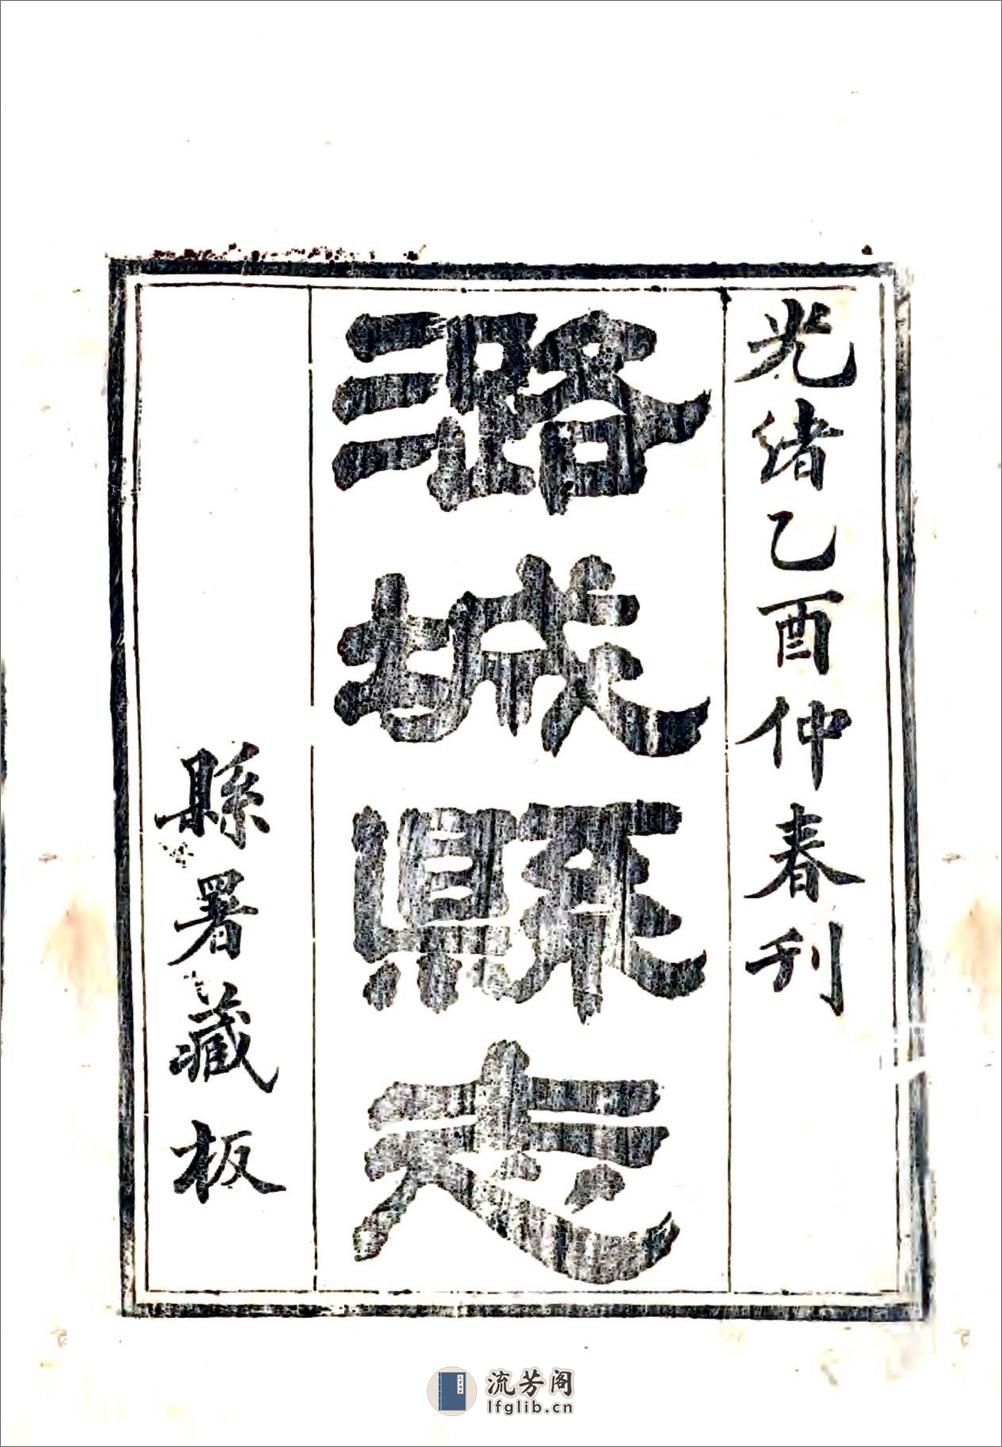 光緒乙酉仲春刊
潞城縣志
縣署藏板
流芳阁
lfglib.cn